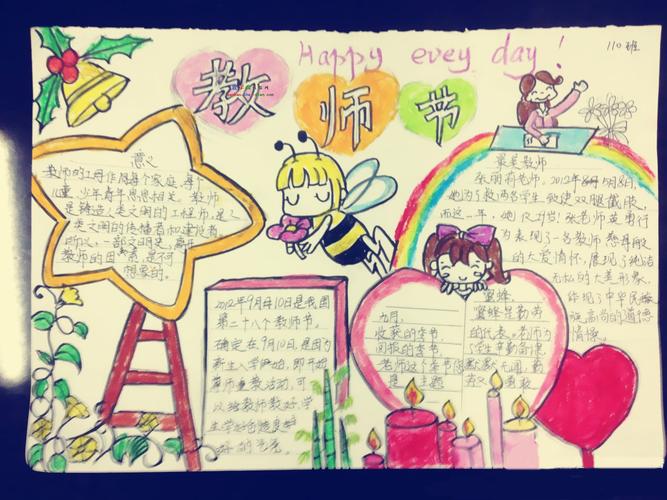 Happy evey day!
110班
教师节
意义
教师的工作
每个家庭、每个
儿童、少年青年息息相关。教师
是铸造人类文明的工程师,是人
类文明的传播者和建设者
所以,一部文明史,离开
教师的因素,是不可
想象的。
2012年9月10日是我国
第二十八个教师节。
确定在9月10日,是因为
新生入学开始,即开始
尊师重教活动,可
以给教师教好、学
生学好创造良好
好的气氛
九月,
收获的季节,
回报的季节,
老师这个季节的
是主题
蜜蜂,
蜜蜂是勤劳
的代表。老师为
了学生辛勤备课
默默无闻,勤
最美教师
张丽莉老师,2012年5月8日,
她为了救两名学生,致使双腿截肢。
而这一年,她仅29岁!张老师英勇行
为表现了一名教师慈母般
的大爱情怀,展现了纯洁
无私的大美形象,
体现了中华民族
最高尚的道德
情操。